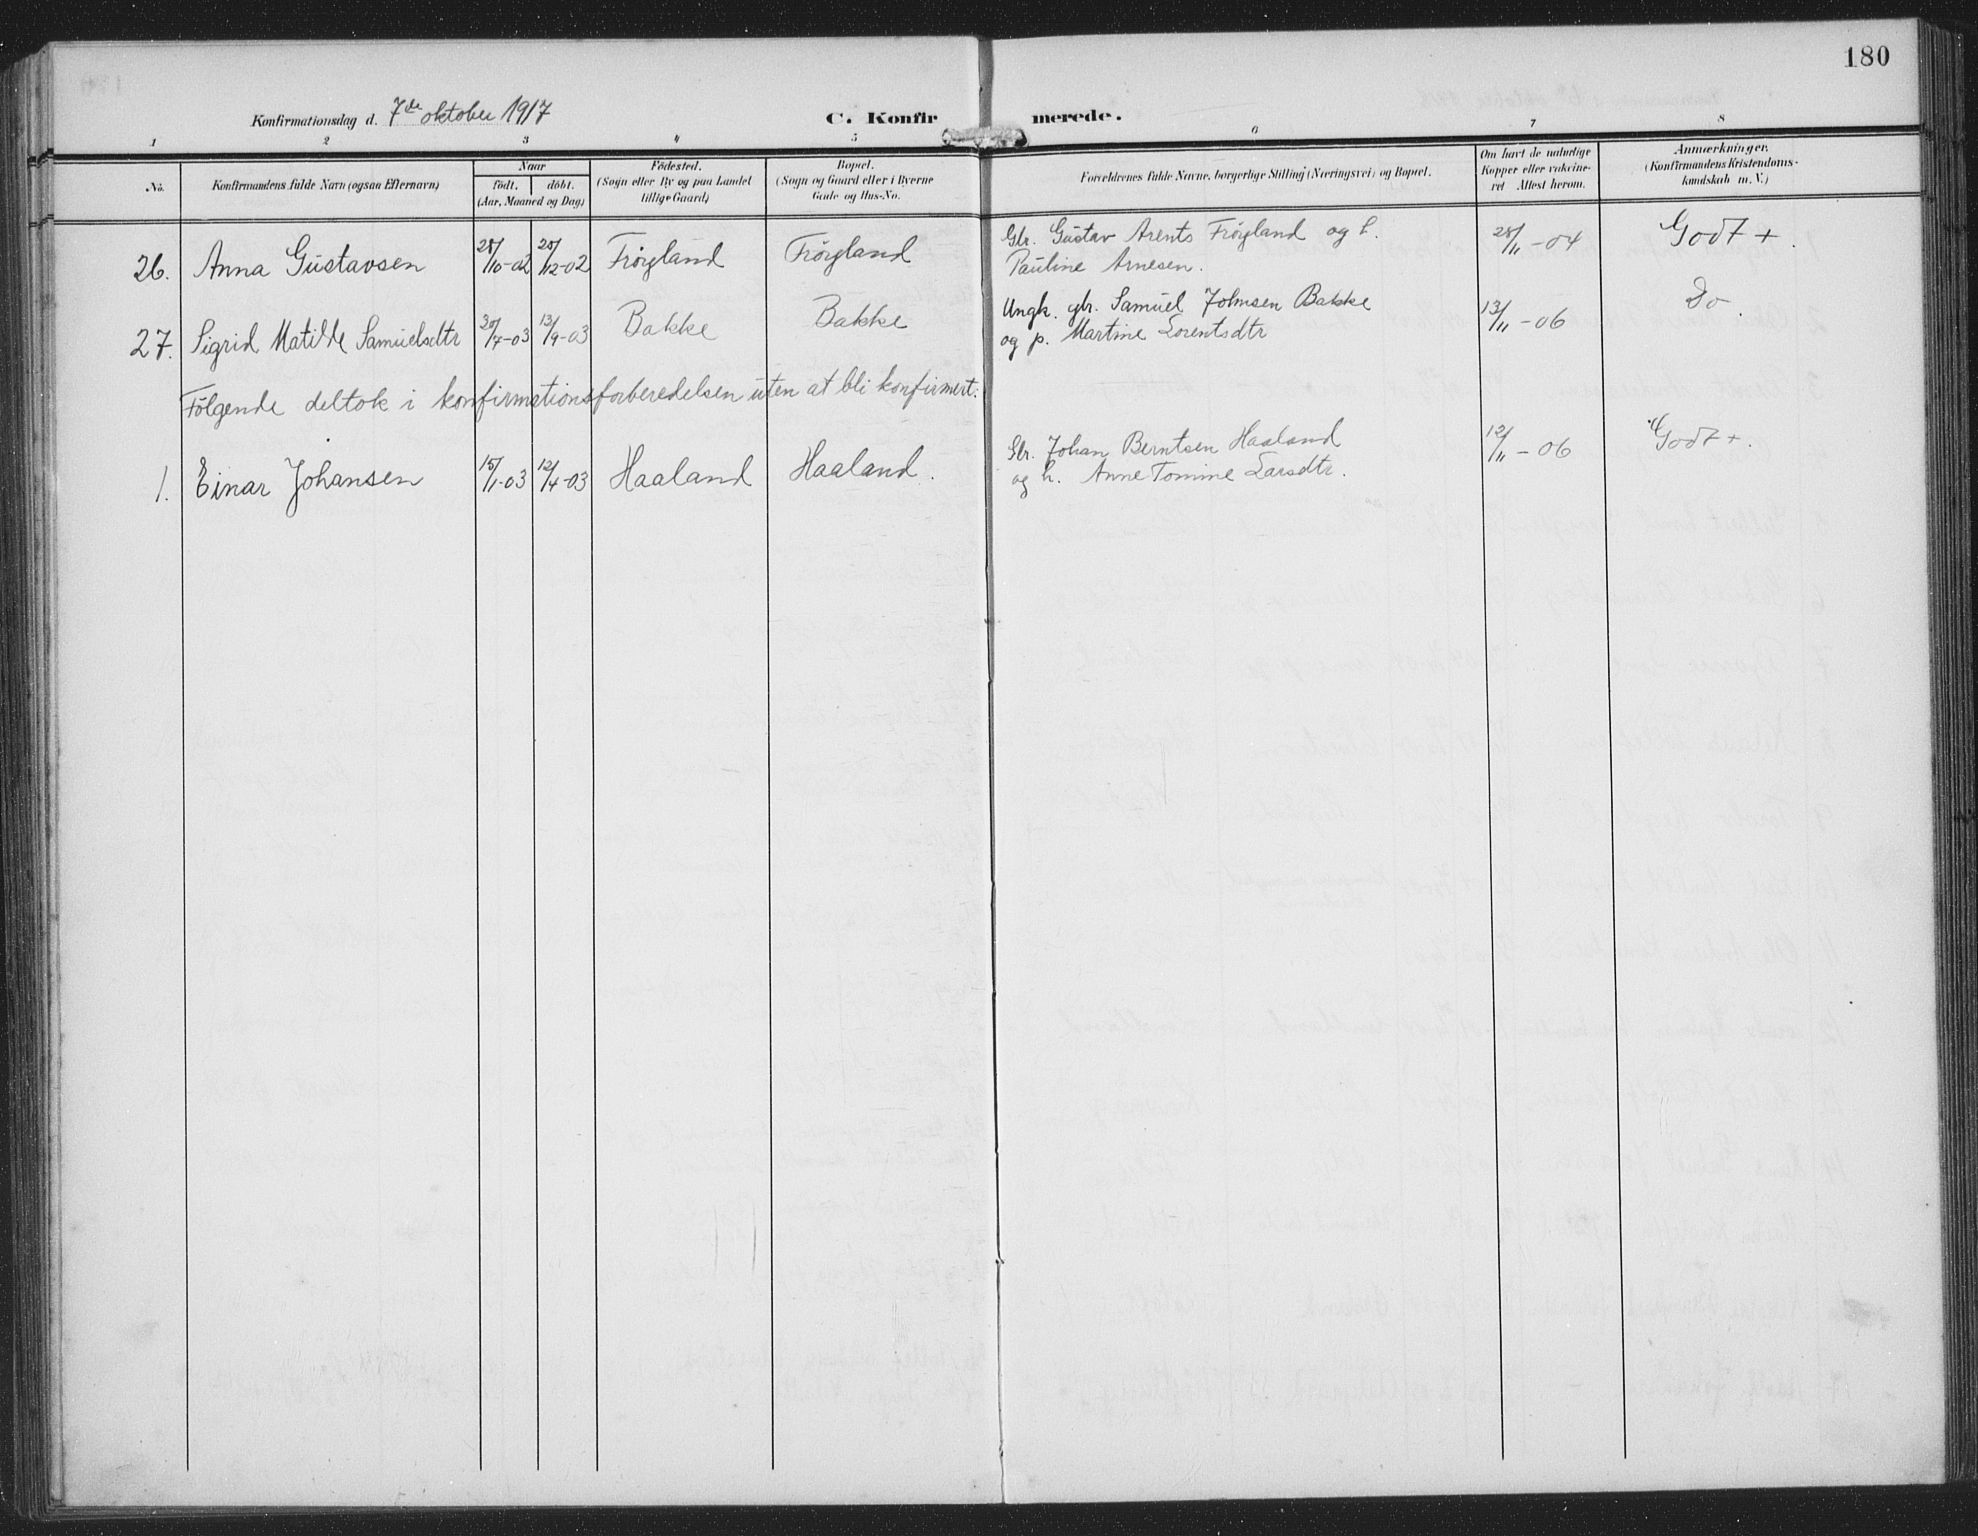 180
Konfirmationsdag d. 7de oktober 1917
C. Konfirmerede.
1 2 3 4 5 6 7 8
No.
Konfirmandens fulde Navn (ogsaa Efternavn)
Naar
födt. döbt.
(Aar, Maaned og Dag)
Födested.
(Sogn eller By og paa Landet
tillige Gaard)
Bopæl.
(Sogn og Gaard eller i Byerne
Gade og Hus-No.
Forældrenes fulde Navne, borgerlige Stilling (Næringsvei) og Bopæl.
Om havt de naturlige
Kopper eller vakcine-
ret Attest herom.
Anmærkninger.
(Konfirmandens Kristendoms-
kundskab m. V.)
26. Anna Gustavsen 28/10-02 20/12-02 Frøyland Frøyland Gbr. Gustav Arents Frøyland og h. 28/11-04 Godt +.
Pauline Arnesen.
27. Sigrid Matilde Samuelsdtr 30/7-03 13/9-03 Bakke Bakke Ungk. gbr. Samuel Johnsen Bakke 13/11-06 Do.
og p. Martine Lorentsdtr
Følgende deltok i konfirmationsforberedelsen uten at bli konfirmert:
1. Einar Johansen 15/1-03 12/4-03 Haaland Haaland. Gbr. Johan Berntsen Haaland 12/11-06 Godt +.
og h. Anne Tomine Larsdtr.